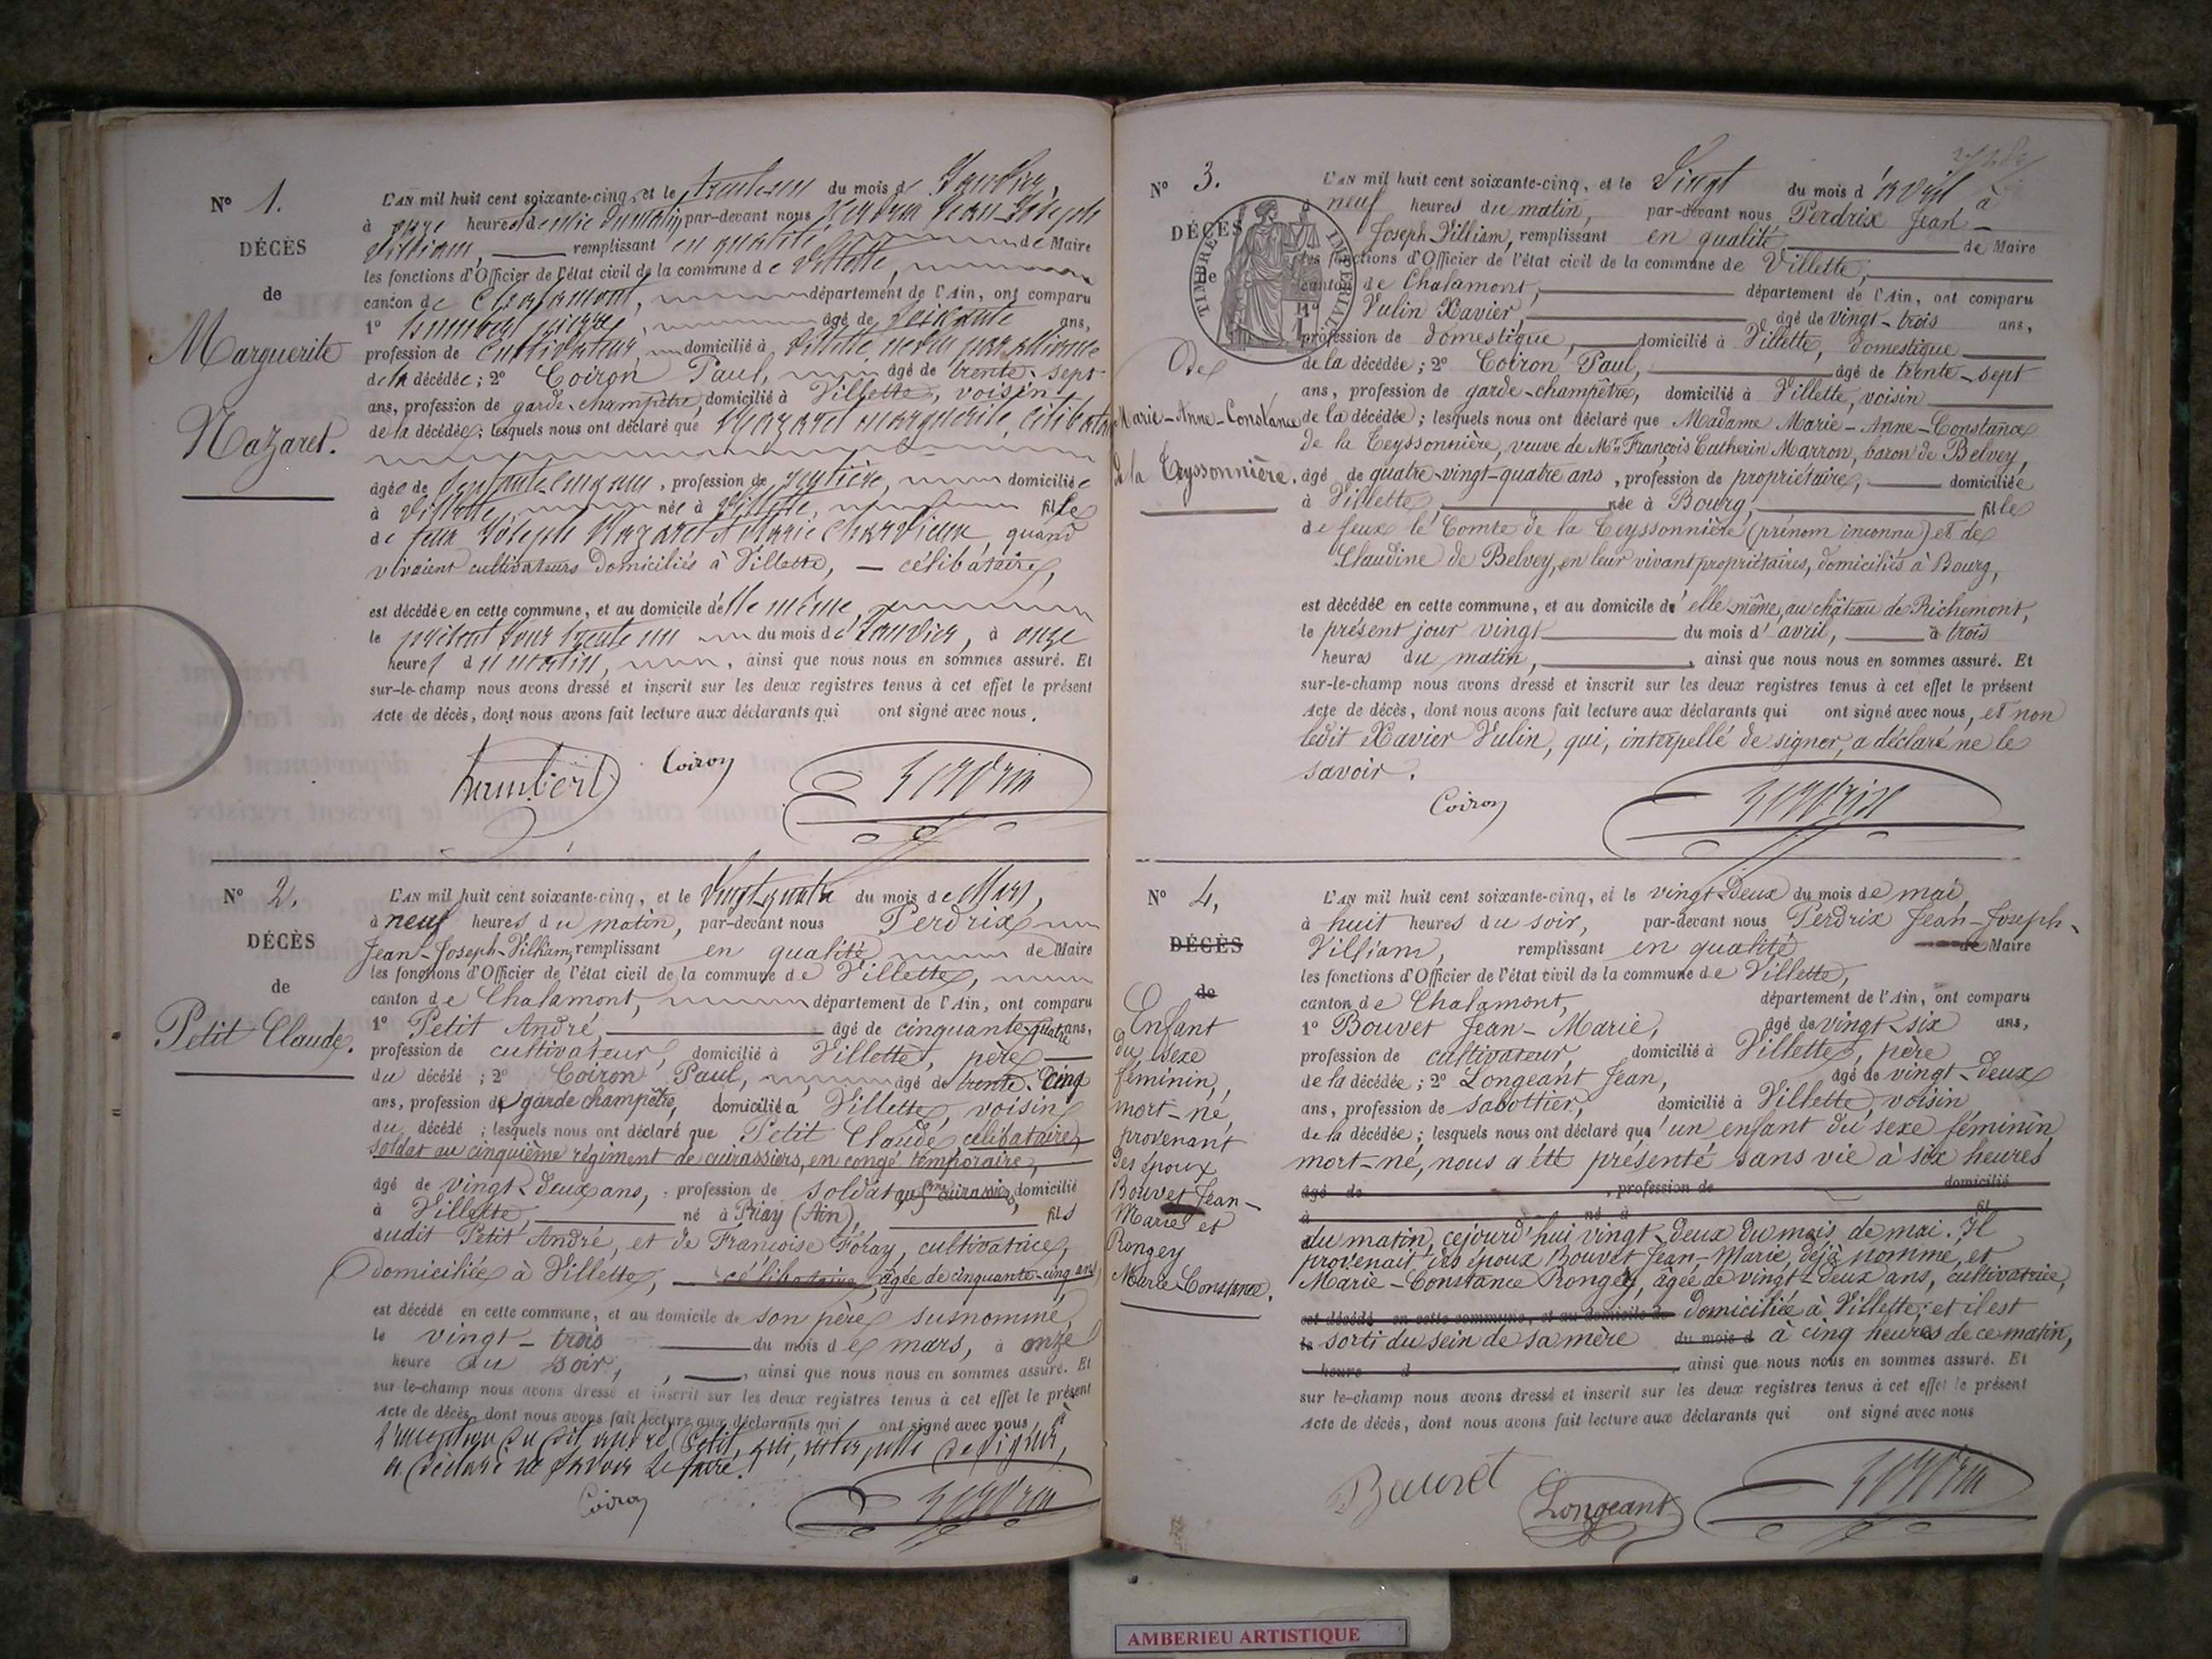 N° 1.
DÉCÈS
de
Marguerite
Nazaret.
L'AN mil huit cent soixante-cinq, et le trente-un du mois de Janvier,
à onze heures demie du matin, par-devant nous Perdrix Jean-Joseph
Villiam, remplissant en qualité de Maire
les fonctions d'Officier de l'état civil de la commune de Villette,
canton de Chalamont, département de l'Ain, ont comparu
1° humbert pierre, âgé de soixante ans,
profession de cultivateur, domicilié à Villette, neveu par alliance
de la décédée; 2° Coiron Paul, âgé de trente-sept
ans, profession de garde-champêtre, domicilié à Villette, voisin
de la décédée; lesquels nous ont déclaré que Nazaret marguerite, célibataire
âgée de septante-cinq ans, profession de rentière, domiciliée
à Villette, née à Villette, fille
de feux Joseph Nazaret et Marie Charvieux, quand
vivaient cultivateurs domiciliés à Villette, — célibataire,
est décédée en cette commune, et au domicile d'elle même,
le présent jour trente un du mois de Janvier, à onze
heures du matin, ainsi que nous nous en sommes assuré. Et
sur-le-champ nous avons dressé et inscrit sur les deux registres tenus à cet effet le présent
Acte de décès, dont nous avons fait lecture aux déclarants qui ont signé avec nous.
humbert Coiron Perdrix
N° 2.
DÉCÈS
de
Petit Claude.
L'AN mil huit cent soixante-cinq, et le Vingt-quatre du mois de Mars,
à neuf heures du matin, par-devant nous Perdrix
Jean-Joseph-Villiam, remplissant en qualité de Maire
les fonctions d'Officier de l'état civil de la commune de Villette,
canton de Chalamont, département de l'Ain, ont comparu
1° Petit André, âgé de cinquante-quatre ans,
profession de cultivateur, domicilié à Villette, père
du décédé; 2° Coiron Paul, âgé de trente-cinq
ans, profession de garde champêtre, domicilié à Villette, voisin
du décédé; lesquels nous ont déclaré que Petit Claude, célibataire,
soldat au cinquième régiment de cuirassiers, en congé temporaire,
âgé de vingt-deux ans, profession de soldat au 5me cuirassiers, domicilié
à Villette, né à Priay (Ain), fils
dudit Petit André, et de Françoise Föray, cultivatrice,
domiciliée à Villette, célibataire, âgée de cinquante-cinq ans
est décédé en cette commune, et au domicile de son père susnommé,
le vingt-trois du mois de mars, à onze
heure du soir, ainsi que nous nous en sommes assuré. Et
sur-le-champ nous avons dressé et inscrit sur les deux registres tenus à cet effet le présent
Acte de décès, dont nous avons fait lecture aux déclarants qui ont signé avec nous, à
l'exception du dit André Petit, qui, interpellé de signer,
a déclaré ne savoir le faire.
Coiron Perdrix
N° 3.
DÉCÈS
de
TIMBRE IMPÉRIAL
De
Marie-Anne-Constance
de la Teyssonnière.
L'AN mil huit cent soixante-cinq, et le Vingt du mois d'Avril, à
à neuf heures du matin, par-devant nous Perdrix Jean-
Joseph-Villiam, remplissant en qualité de Maire
les fonctions d'Officier de l'état civil de la commune de Villette,
canton de Chalamont, département de l'Ain, ont comparu
1° Vulin Xavier, âgé de vingt-trois ans,
profession de domestique, domicilié à Villette, domestique
de la décédée; 2° Coiron Paul, âgé de trente-sept
ans, profession de garde-champêtre, domicilié à Villette, voisin
de la décédée; lesquels nous ont déclaré que Madame Marie-Anne-Constance
de la Teyssonnière, veuve de Mr. François Catherin Marron, baron de Belvey,
âgé de quatre-vingt-quatre ans, profession de propriétaire, domiciliée
à Villette, née à Bourg, fille
de feux le Comte de la Teyssonnière (prénom inconnu) et de
Claudine de Belvey, en leur vivant propriétaires, domiciliés à Bourg,
est décédée en cette commune, et au domicile d'elle-même, au château de Richemont,
le présent jour vingt du mois d'avril, à trois
heures du matin, ainsi que nous nous en sommes assuré. Et
sur-le-champ nous avons dressé et inscrit sur les deux registres tenus à cet effet le présent
Acte de décès, dont nous avons fait lecture aux déclarants qui ont signé avec nous, et non
ledit Xavier Vulin, qui, interpellé de signer, a déclaré ne le
savoir.
Coiron Perdrix
N° 4,
DÉCÈS
de
Enfant
du sexe
féminin,
mort-né,
provenant
des époux
Bouvet Jean-
Marie et
Rongey
Marie-Constance.
L'AN mil huit cent soixante-cinq, et le vingt-deux du mois de mai,
à huit heures du soir, par-devant nous Perdrix Jean-Joseph-
Villiam, remplissant en qualité de Maire
les fonctions d'Officier de l'état civil de la commune de Villette,
canton de Chalamont, département de l'Ain, ont comparu
1° Bouvet Jean-Marie, âgé de vingt-six ans,
profession de cultivateur, domicilié à Villette, père
de la décédée; 2° Longeant Jean, âgé de vingt-deux
ans, profession de sabottier, domicilié à Villette, voisin
de la décédée; lesquels nous ont déclaré qu'un enfant du sexe féminin
mort-né, nous a été présenté sans vie à six heures
âgé de , profession de domicilié
à né à fil
du matin, cejourd'hui vingt-deux du mois de mai. Il
provenait des époux Bouvet Jean-Marie, déjà nommé, et
Marie-Constance Rongey, âgée de vingt-deux ans, cultivatrice,
est décédé en cette commune, et au domicile de domiciliée à Villette; et il est
le sorti du sein de sa mère du mois d à cinq heures de ce matin,
heure d , ainsi que nous nous en sommes assuré. Et
sur-le-champ nous avons dressé et inscrit sur les deux registres tenus à cet effet le présent
Acte de décès, dont nous avons fait lecture aux déclarants qui ont signé avec nous
Bouvet Longeant Perdrix
AMBERIEU ARTISTIQUE